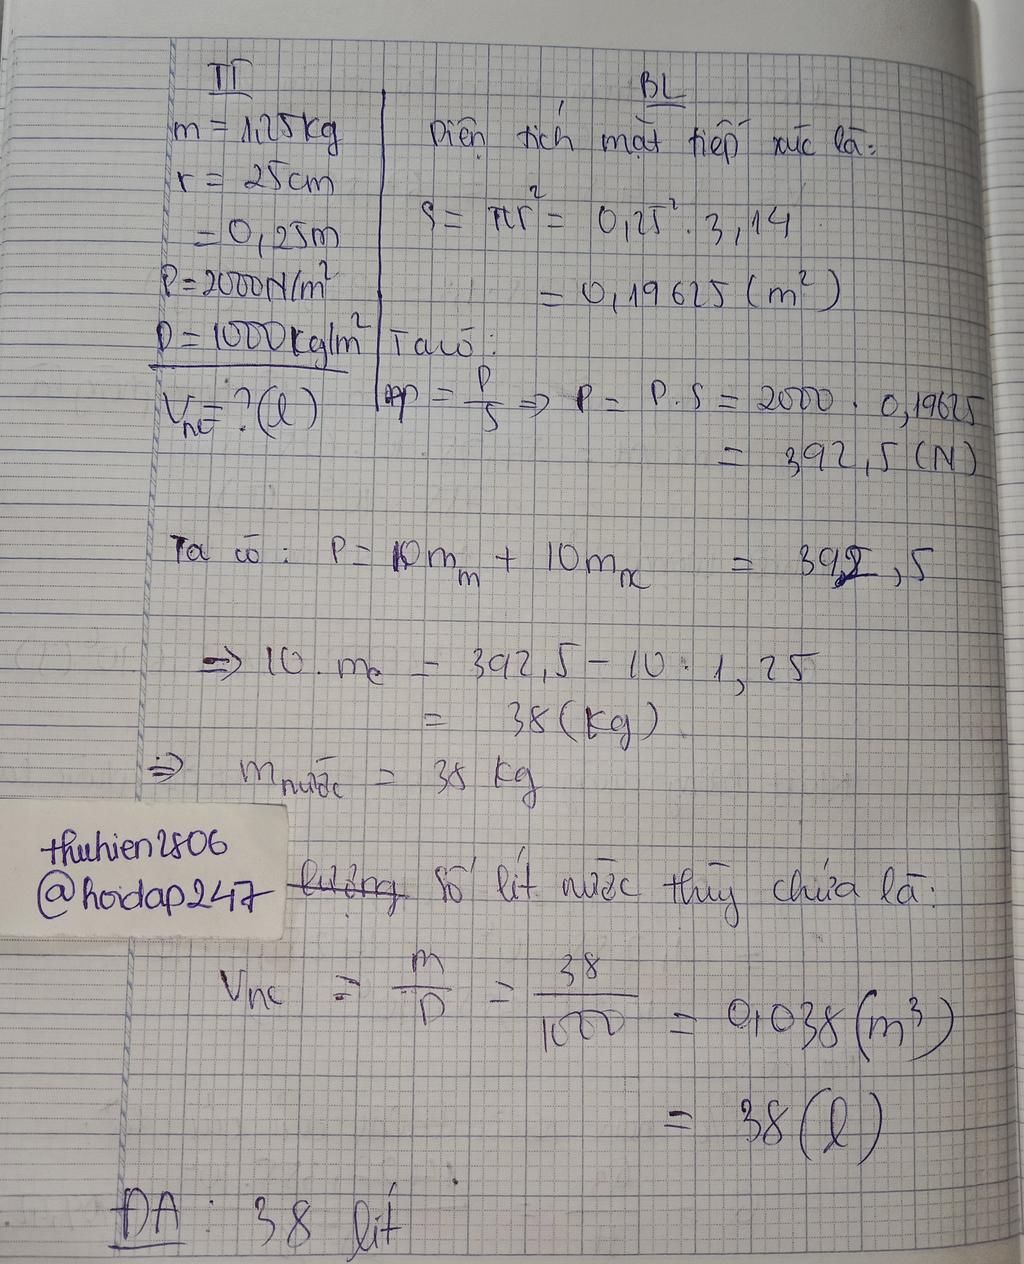 TT
m = 1,25kg
r = 25cm
= 0,25m
P = 2000N/m²
D = 1000kg/m²
Vnc = ? (l)
BL
Diện tích mặt tiếp xúc là:
S = πr² = 0,25² . 3,14
= 0,19625 (m²)
Ta có:
p = P/S => P = P.S = 2000 . 0,19625
= 392,5 (N)
Ta có: P = 10mm + 10mn = 392,5
=> 10. = 392,5 - 10 . 1,25
= 38 (kg)
=> mnước = 38 kg
thuhien2806
@hoidap247
lượng số lít nước thùy chứa là:
Vnc = m/D = 38/1000 = 0,038 (m³)
= 38 (l)
ĐA : 38 lít